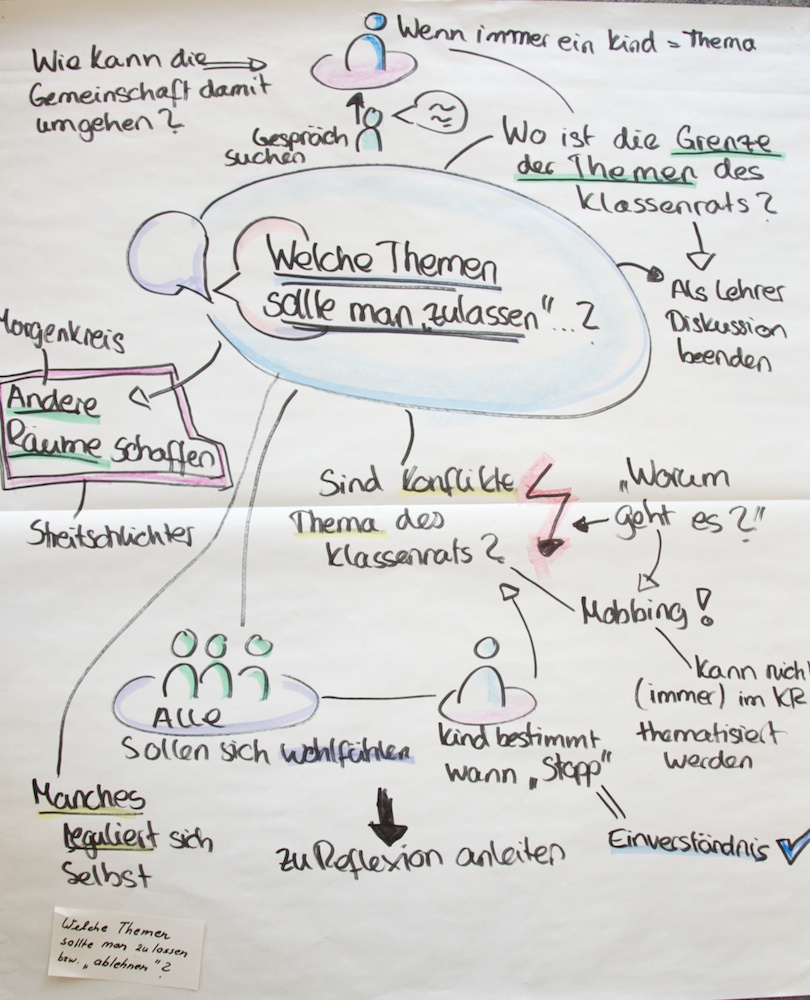 Wie kann die
Gemeinschaft damit
umgehen?
Wenn immer ein Kind = Thema
Gespräch
suchen
Wo ist die Grenze
der Themen des
Klassenrats?
Als Lehrer
Diskussion
beenden
Welche Themen
sollte man „zulassen“...?
Morgenkreis
Andere
Räume schaffen
Streitschlichter
Sind Konflikte
Thema des
Klassenrats?
„Worum
geht es?"
Mobbing!
Kann nich
(immer) im KR
thematisiert
werden
Alle
Sollen sich wohlfühlen
Kind bestimmt
wann „Stopp"
Einverständnis
zu Reflexion anleiten
Manches
reguliert sich
selbst
Welche Themen
sollte man zulassen
bzw. „ablehnen"?